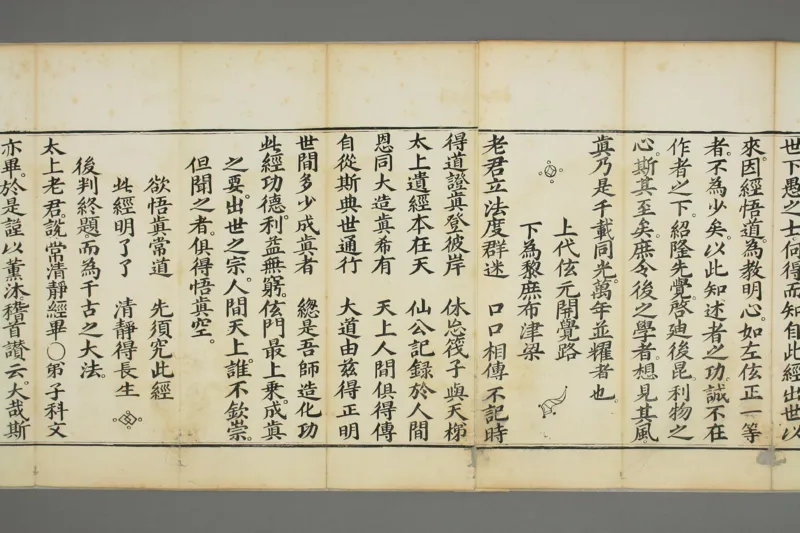 世下愚之士何得而知自此經出世以
來。因經悟道。為教明心。如左伭正一等
者。不為少矣。以此知述者之功。誠不在
作者之下。紹隆先覺。啓廸後昆。利物之
心。斯其至矣。庶令後之學者。想見其風。
眞乃是千載同光。萬年並耀者也。
上代伭元開覺路
下為黎庶布津梁
老君立法度群迷　口口相傳不記時
得道證眞登彼岸　休忘筏子與天梯
太上遺經本在天　仙公記録於人間
恩同大造眞希有　天上人間俱得傳
自從斯典世通行　大道由茲得正明
世間多少成眞者　總是吾師造化功
此經功德。利益無窮。伭門最上乗。成眞
之要。出世之宗。人間天上。誰不欽崇。
但聞之者。俱得悟眞空。
欲悟眞常道　先須究此經
此經明了了　清靜得長生
後判終題。而為千古之大法。
太上老君。說常清靜經畢〇弟子科文
亦畢。於是謹以薰沐。稽首讃云。大哉斯